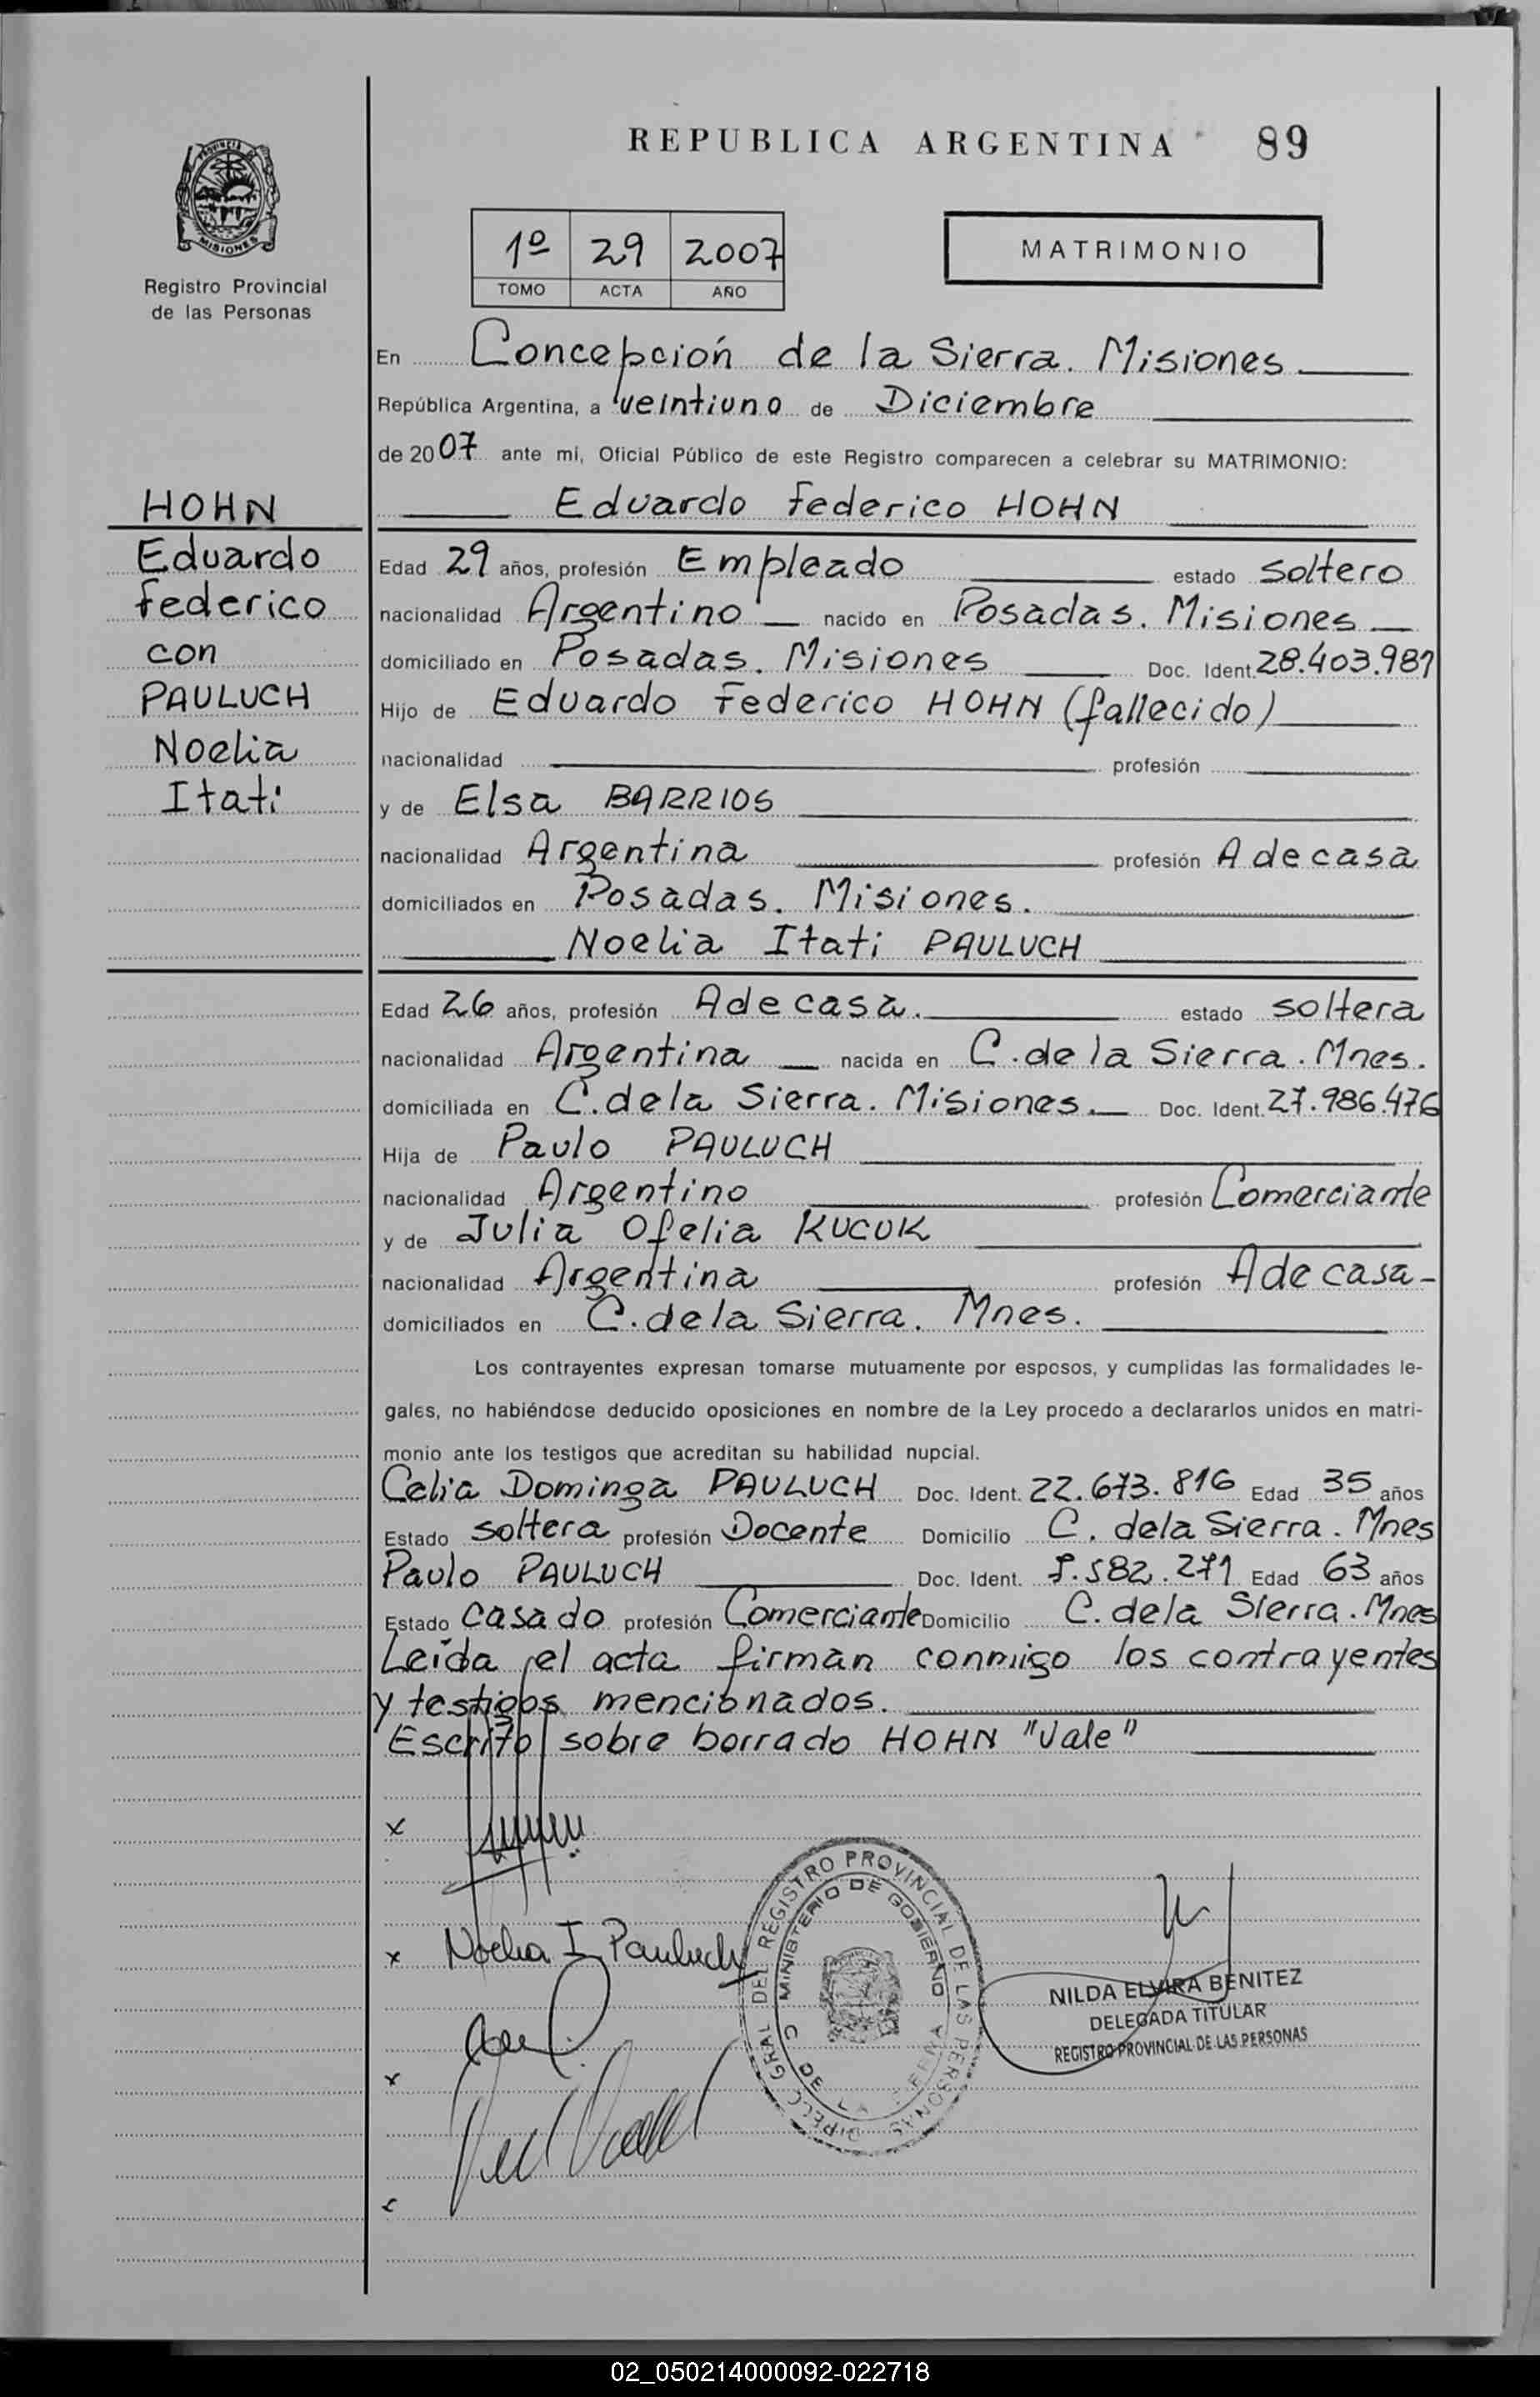 REPUBLICA ARGENTINA 89
PROVINCIA
MISIONES
Registro Provincial
de las Personas
1º 29 2007
TOMO ACTA AÑO
MATRIMONIO
En Concepción de la Sierra. Misiones
República Argentina, a veintiuno de Diciembre
de 2007 ante mi, Oficial Público de este Registro comparecen a celebrar su MATRIMONIO:
HOHN
Eduardo
Federico
con
PAULUCH
Noelia
Itati
Eduardo Federico HOHN
Edad 29 años, profesión Empleado estado soltero
nacionalidad Argentino nacido en Posadas. Misiones
domiciliado en Posadas. Misiones Doc. Ident. 28.403.981
Hijo de Eduardo Federico HOHN (fallecido)
nacionalidad profesión
y de Elsa BARRIOS
nacionalidad Argentina profesión A de casa
domiciliados en Posadas. Misiones.
Noelia Itati PAULUCH
Edad 26 años, profesión A de casa. estado soltera
nacionalidad Argentina nacida en C. de la Sierra. Mnes.
domiciliada en C. de la Sierra. Misiones. Doc. Ident. 27.986.476
Hija de Paulo PAULUCH
nacionalidad Argentino profesión Comerciante
y de Julia Ofelia KUCUK
nacionalidad Argentina profesión A de casa-
domiciliados en C. de la Sierra. Mnes.
Los contrayentes expresan tomarse mutuamente por esposos, y cumplidas las formalidades le-
gales, no habiéndose deducido oposiciones en nombre de la Ley procedo a declararlos unidos en matri-
monio ante los testigos que acreditan su habilidad nupcial.
Celia Dominga PAULUCH Doc. Ident. 22.673.816 Edad 35 años
Estado soltera profesión Docente Domicilio C. de la Sierra. Mnes
Paulo PAULUCH Doc. Ident. Edad 63 años
Estado Casado profesión Comerciante Domicilio C. de la Sierra. Mnes
Leída el acta firman conmigo los contrayentes
y testigos mencionados.
Escrito sobre borrado HOHN "Vale"
x
x Noelia I. Pauluch
x
DEL REGISTRO PROVINCIAL DE LAS PERSONAS
MINISTERIO DE GOBIERNO
NILDA ELVIRA BENITEZ
DELEGADA TITULAR
REGISTRO PROVINCIAL DE LAS PERSONAS
02_050214000092-022718